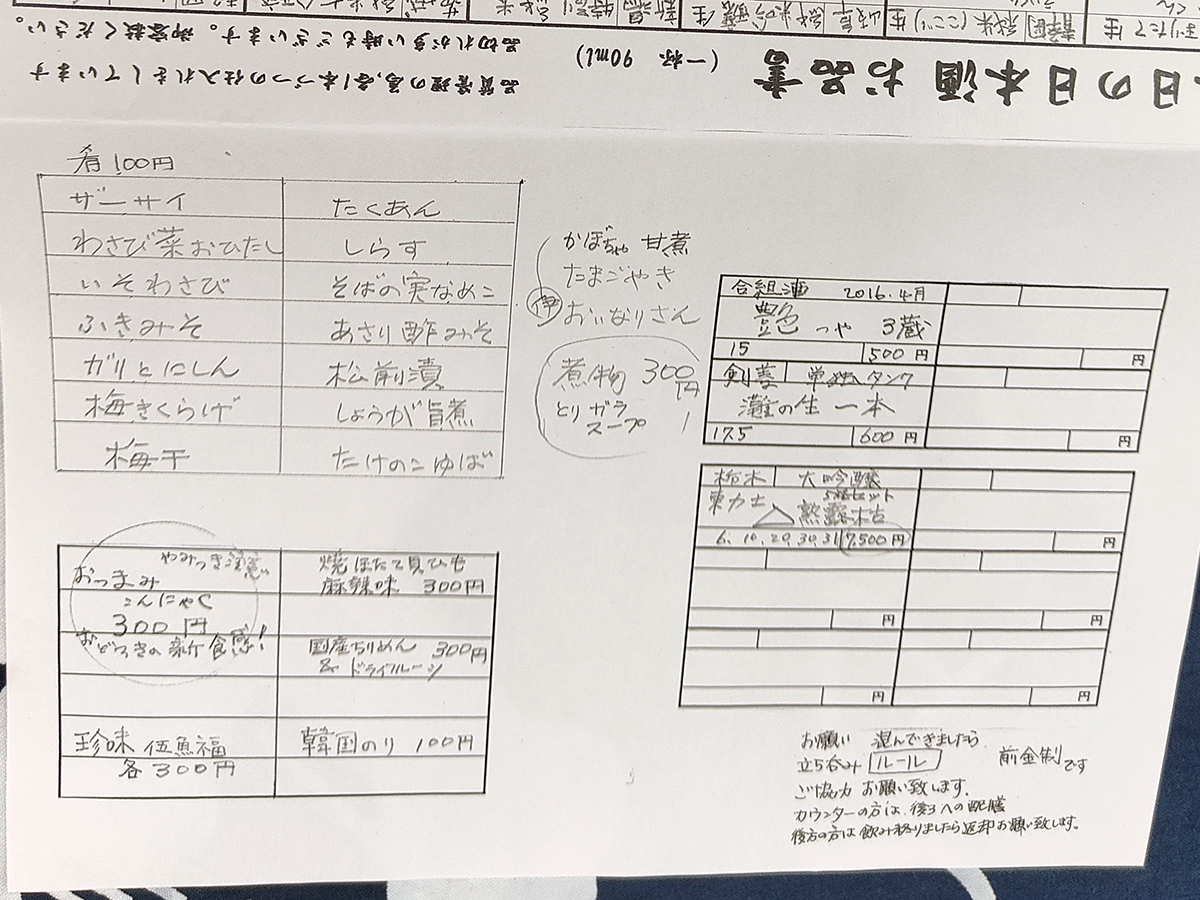 今日の日本酒 お品書 (一杯 90ml)
品質管理の為、各1本づつの仕入れをしています
品切れが多い時もございます。御容赦ください
肴 100円
ザーサイ たくあん
わさび菜おひたし しらす
いそわさび そばの実なめこ
ふきみそ あさり酢みそ
ガリとにしん 松前漬
梅きくらげ しょうが旨煮
梅干 たけのこゆば
かぼちゃ 甘煮
たまごやき
おいなりさん
煮物 300円
とりガラ
スープ
やみつき注意
おつまみ
こんにゃく
300円
おどろきの新食感!
焼ほたて貝ひも
麻辣味 300円
国産ちりめん 300円
& ドライフルーツ
珍味 伍魚福
各300円
韓国のり 100円
合組酒 2016.4月
艶 つや 3蔵
15 500円
剣菱 単独タンク
灘の生一本
17.5 600円
栃木 大吟醸
東力士 5種セット
熟露枯
6. 10. 20. 30. 31 7,500円
円
円
円
円
円
円
円
お願い 混んできましたら
立ち呑み ルール 前金制です
ご協力 お願い致します。
カウンターの方は、後ろへの配膳
後方の方は飲み終りましたら返却お願い致します。